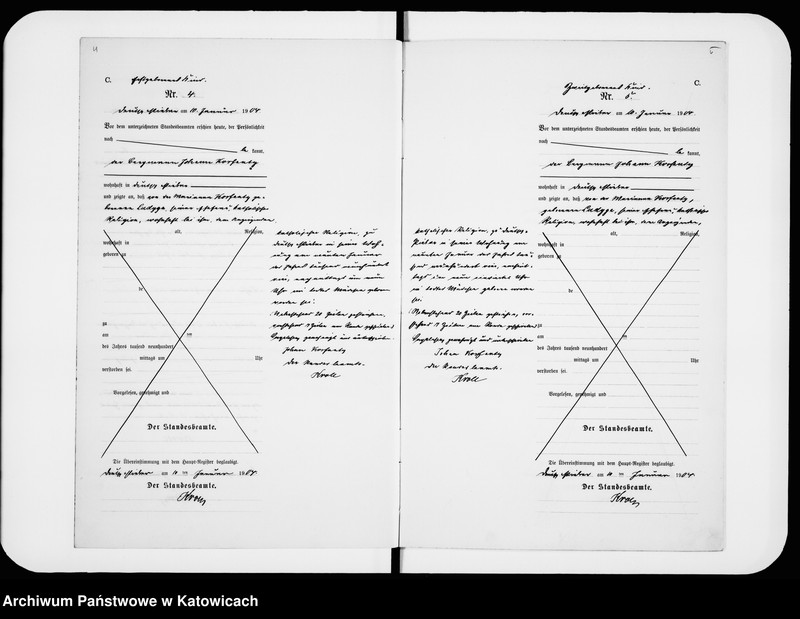 4
C.
Erstgeborenes Kind.
Nr. 4.
Deutsch am 11. Januar 1904.
Vor dem unterzeichneten Standesbeamten erschien heute, der Persönlichkeit
nach
be kannt,
der Bergmann Johann
wohnhaft in Deutsch
und zeigte an, daß von der Marianna ge-
borene seiner Ehefrau, katholischer
Religion, wohnhaft bei ihm, dem Anzeigenden
alt, Religion,
wohnhaft in
geboren zu
de
zu
am ten
des Jahres tausend neunhundert
mittags um Uhr
verstorben sei.
Vorgelesen, genehmigt und
Der Standesbeamte.
Die Übereinstimmung mit dem Haupt-Register beglaubigt.
Deutsch am 11 ten Januar 1904
Der Standesbeamte.
Kroll
katholischer Religion, zu
Deutsch in seiner Wohn-
ung am neunten Januar
des Jahres tausend neunhundert
vier, nachmittags um neun
Uhr ein todtes Mädchen geboren
worden sei.
Vorstehend 20 Zeilen gestrichen,
Vorgelesen, genehmigt und unterschrieben
Johann
Der Standesbeamte.
Kroll
5
C.
Zweitgeborenes Kind.
Nr. 5.
Deutsch am 11. Januar 1904.
Vor dem unterzeichneten Standesbeamten erschien heute, der Persönlichkeit
nach
be kannt,
der Bergmann Johann
wohnhaft in Deutsch
und zeigte an, daß von der Marianna
geborene seiner Ehefrau, katholischer
Religion, wohnhaft bei ihm, dem Anzeigenden,
alt, Religion,
wohnhaft in
geboren zu
de
zu
am ten
des Jahres tausend neunhundert
mittags um Uhr
verstorben sei.
Vorgelesen, genehmigt und
Der Standesbeamte.
Die Übereinstimmung mit dem Haupt-Register beglaubigt.
Deutsch am 11 ten Januar 1904
Der Standesbeamte.
Kroll
katholischer Religion, zu Deutsch
in seiner Wohnung am
neunten Januar des Jahres tau-
send neunhundert vier, nachmit-
tags um neun Uhr
ein todtes Mädchen geboren worden
sei.
Vorstehend 20 Zeilen gestrichen,
Vorgelesen, genehmigt und unterschrieben
Johann
Der Standesbeamte.
Kroll
Archiwum Państwowe w Katowicach